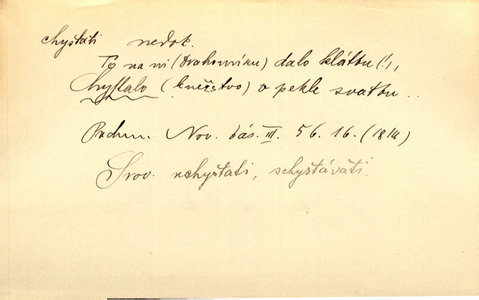 chystati nedok.
To na ni (Drahomíru) dalo klátbu (!),
Chystalo (kněžstvo) v pekle svatbu ..
Puchm. Nov. bás. III. 56. 16. (1814)
Srov. uchystati, schystávati.